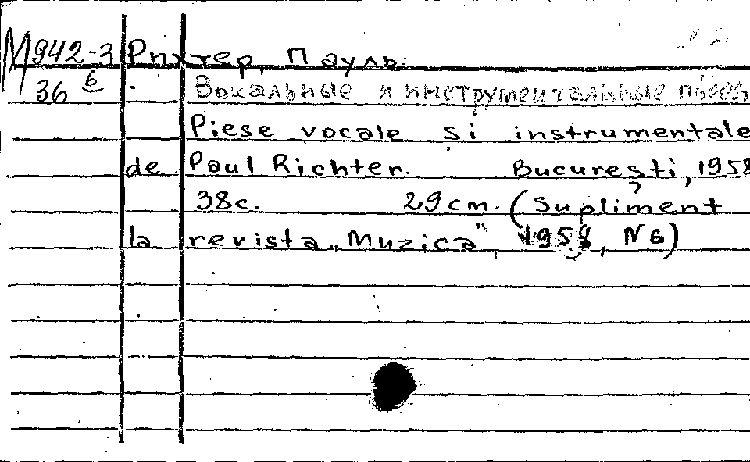 М942-3 Рихтер, Пауль.
36 б Вокальные и инструментальные пьесы
Piese vocale si instrumentale
de Paul Richter. Bucuresti, 1958
38с. 29cm. (Supliment
la revista „Muzica", 1958, N6)